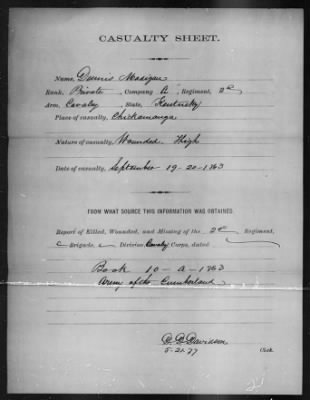 CASUALTY SHEET.
Name, Dennis Madigan
Rank, Private, Company A, Regiment, 2nd
Arm, Cavalry, State, Kentucky
Place of casualty, Chickamauga
Nature of casualty, Wounded. Thigh
Date of casualty, September 19-20-1863
FROM WHAT SOURCE THIS INFORMATION WAS OBTAINED.
Report of Killed, Wounded, and Missing of the 2nd Regiment,
Brigade, Division Cavalry Corps, dated
Book 10-A-1863
Army of the Cumberland
Davidson
5-21-77 Clerk.